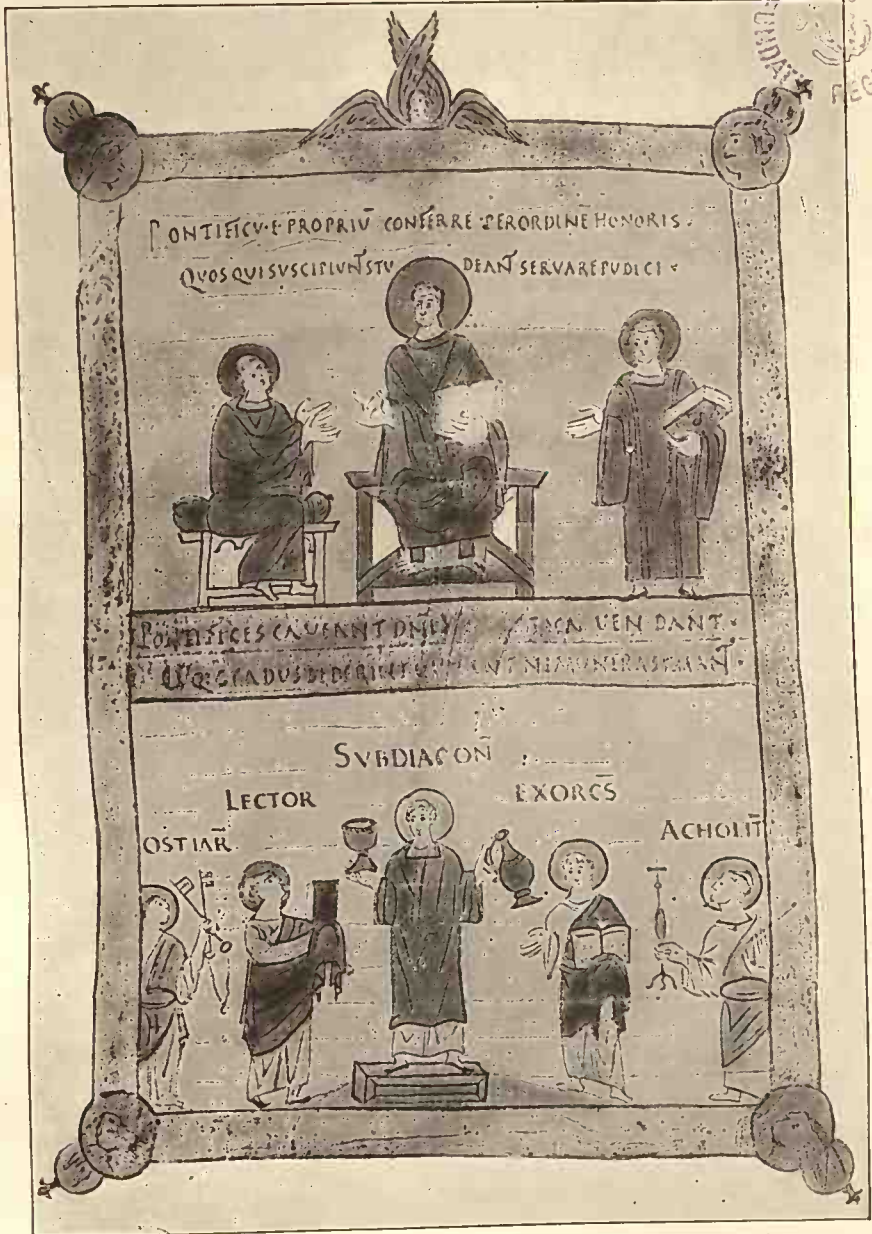 PONTIFICV·E· PROPRIŪ CONFERRE PER ORDINĒ HONORIS·
QUOS QUI SUSCIPIUNT STUDEANT SERVARE PUDICI·
PONTIFICES CAVEANT DNĪ VENDANT·
GRADUS DEDERINT NE MUNERA
SVBDIACOÑ
LECTOR
EXORCS̄
OSTIAR̄
ACHOLIT̄